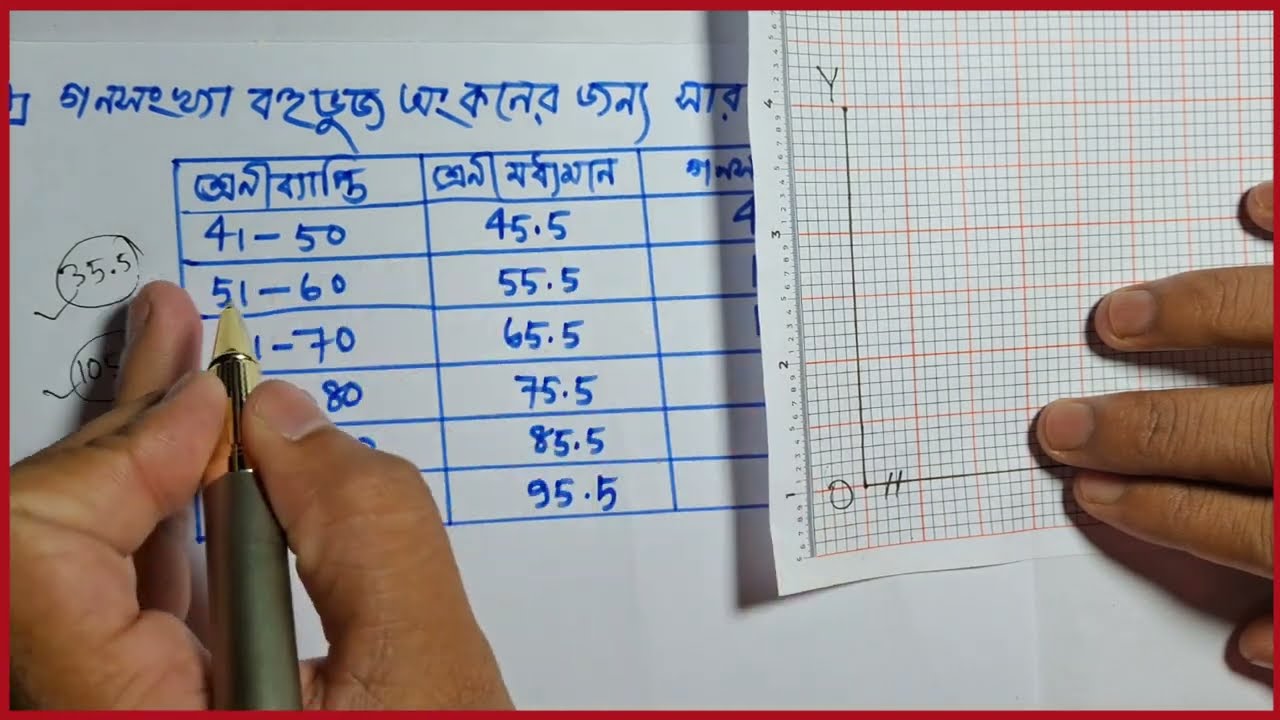 গনসংখ্যা বহুভুজ অংকনের জন্য সার
শ্রেনীব্যাপ্তি শ্রেনী মধ্যমান গনস
41-50 45.5 4
35.5
51-60 55.5
1-70 65.5
105
80 75.5
85.5
95.5
Y
4
3
2
1
O